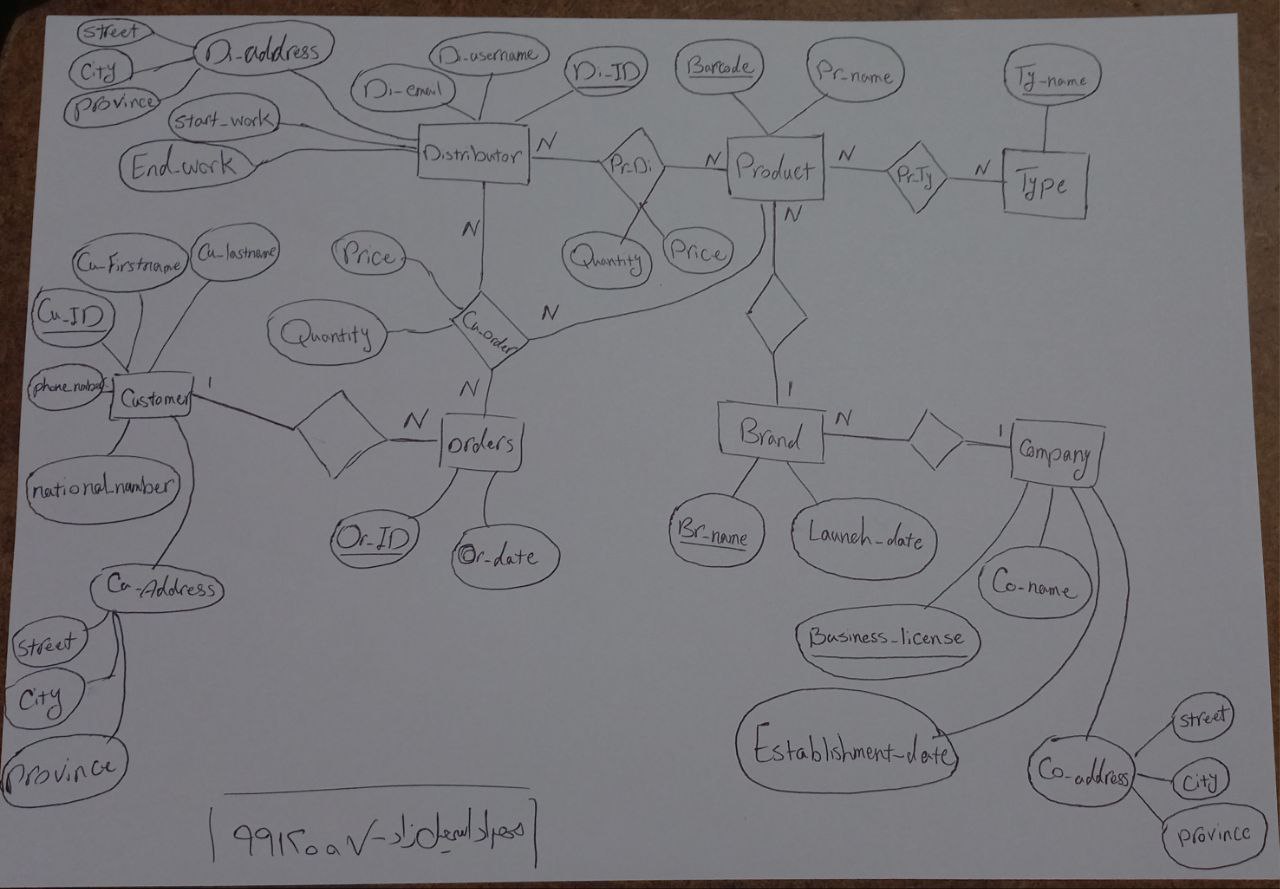 street
City
Province
Di_address
Start_work
End_work
Di_email
Di_username
Di_ID
Distributor
N
Pr_Di
N
Quantity
Price
Barcode
Pr_name
Product
N
Pr_Ty
N
Ty_name
Type
N
N
Price
Quantity
Cu_order
N
N
Cu_Firstname
Cu_lastname
Cu_ID
phone number
Customer
1
N
orders
national_number
Or_ID
Or_date
Cu_Address
street
City
Province
1
Brand
N
1
Company
Br_name
Launch_date
Co_name
Business_license
Establishment_date
Co_address
street
City
province